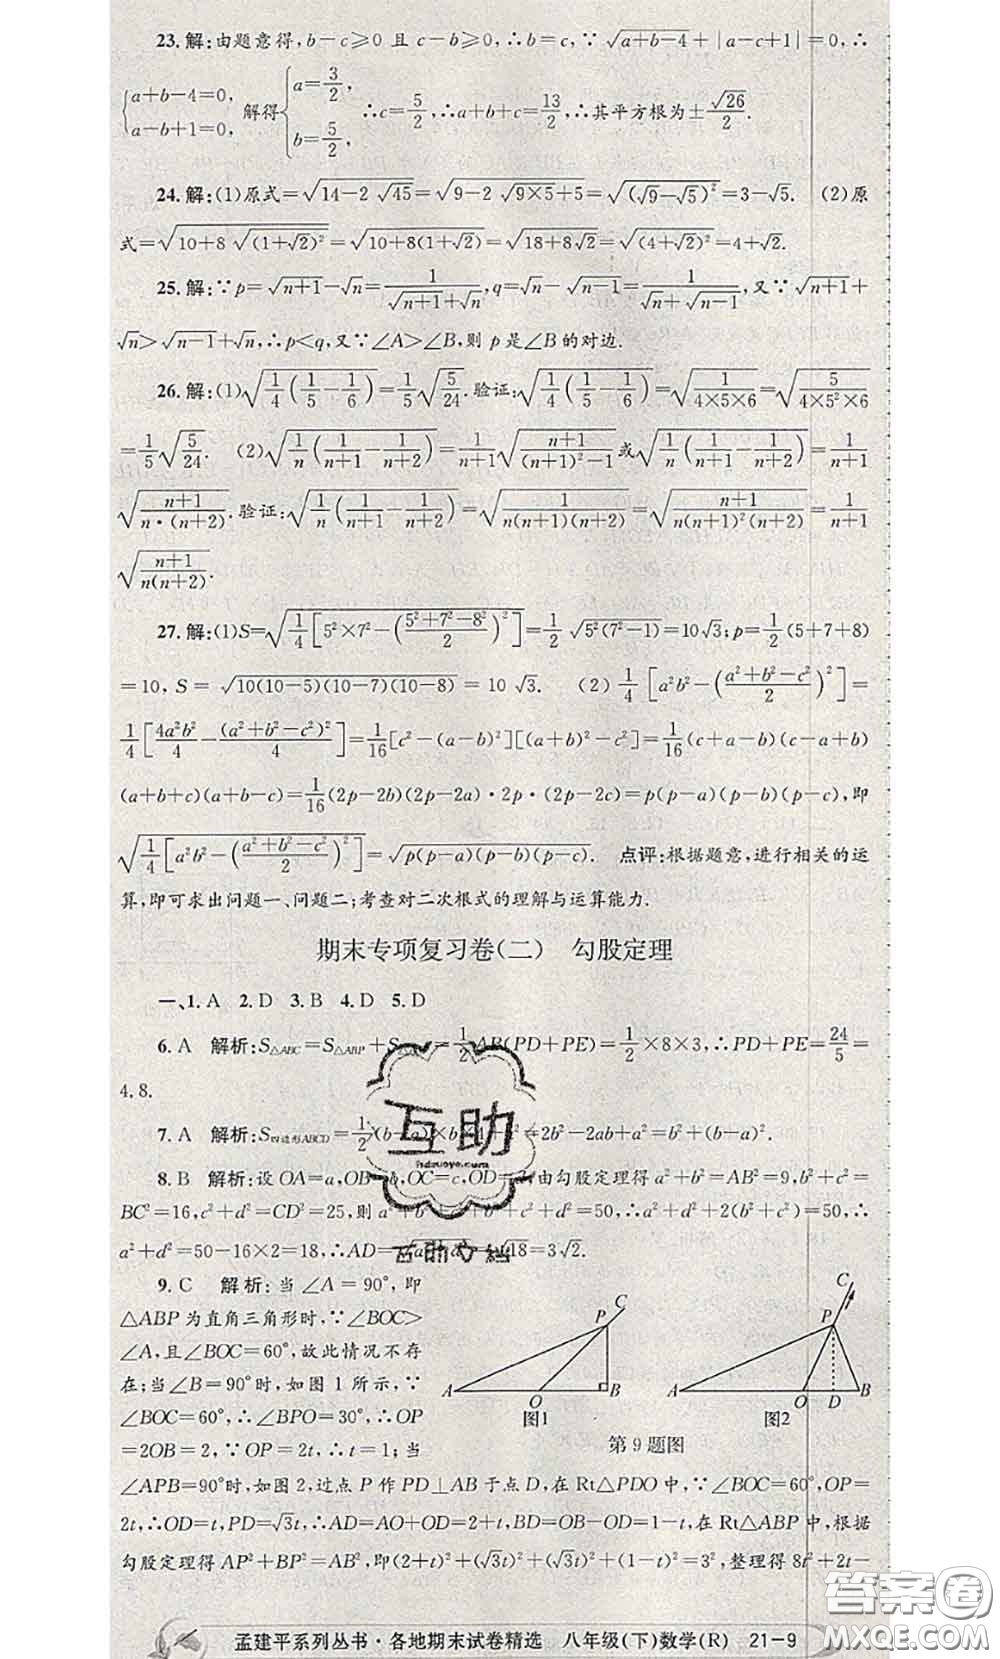 23.解:由题意得,b−c⩾0 且 c−b⩾0,∴b=c,∵√(a+b−4)+|a−c+1|=0,∴
{a+b−4=0, a−b+1=0, 解得{a=3/2, b=5/2, ∴c=5/2,∴a+b+c=13/2,∴其平方根为±√26/2.
24.解:(1)原式=√(14−2√45)=√(9−2√(9×5)+5)=√((√9−√5)²)=3−√5. (2)原
式=√(10+8√((1+√2)²))=√(10+8(1+√2))=√(18+8√2)=√((4+√2)²)=4+√2.
25.解:∵p=√(n+1)−√n=1/(√(n+1)+√n),q=√n−√(n−1)=1/(√n+√(n−1)),又∵√(n+1)+
√n>√(n−1)+√n,∴p<q,又∵∠A>∠B,则 p 是∠B的对边.
26.解:(1)√(1/4(1/5−1/6))=1/5√(5/24).验证:√(1/4(1/5−1/6))=√(1/(4×5×6))=√(5/(4×5²×6))
=1/5√(5/24). (2)√(1/n(1/(n+1)−1/(n+2)))=1/(n+1)√((n+1)/((n+1)²−1))或√(1/n(1/(n+1)−1/(n+2)))=1/(n+1)
√((n+1)/(n·(n+2))).验证:√(1/n(1/(n+1)−1/(n+2)))=√(1/(n(n+1)(n+2)))=√((n+1)/(n(n+1)²(n+2)))=1/(n+1)
√((n+1)/(n(n+2))).
27.解:(1)S=√(1/4[5²×7²−((5²+7²−8²)/2)²])=1/2√(5²(7²−1))=10√3;p=1/2(5+7+8)
=10,S=√(10(10−5)(10−7)(10−8))=10√3. (2)1/4[a²b²−((a²+b²−c²)/2)²]=
1/4[4a²b²/4−(a²+b²−c²)²/4]=1/16[c²−(a−b)²][(a+b)²−c²]=1/16(c+a−b)(c−a+b)
(a+b+c)(a+b−c)=1/16(2p−2b)(2p−2a)·2p·(2p−2c)=p(p−a)(p−b)(p−c),即
√(1/4[a²b²−((a²+b²−c²)/2)²])=√(p(p−a)(p−b)(p−c)). 点评:根据题意,进行相关的运
算,即可求出问题一、问题二;考查对二次根式的理解与运算能力.
期末专项复习卷(二) 勾股定理
一、1.A 2.D 3.B 4.D 5.D
6.A 解析:S△ABC=S△ABP+S =1/2 AB(PD+PE)=1/2×8×3,∴PD+PE=24/5=
4.8.
7.A 解析:S四边形ABCD=1/2(b− )×b =2b²−2ab+a²=b²+(b−a)².
8.B 解析:设 OA=a,OB= ,OC=c,OD= ,由勾股定理得 a²+b²=AB²=9,b²+c²=
BC²=16,c²+d²=CD²=25,则 a²+b²+ +c²+d²=50,∴a²+d²+2(b²+c²)=50,∴
a²+d²=50−16×2=18,∴AD= =√18=3√2.
9.C 解析:当 ∠A=90°,即
△ABP 为直角三角形时,∵∠BOC>
∠A,且∠BOC=60°,故此情况不存
在;当∠B=90°时,如图 1 所示,∵
∠BOC=60°,∴∠BPO=30°,∴OP
=2OB=2,∵OP=2t,∴t=1;当
∠APB=90°时,如图 2,过点 P 作 PD⊥AB 于点 D,在 Rt△PDO 中,∵∠BOC=60°,OP=
2t,∴OD=t,PD=√3t,∴AD=AO+OD=2+t,BD=OB−OD=1−t,在 Rt△ABP 中,根据
勾股定理得 AP²+BP²=AB²,即(2+t)²+(√3t)²+(√3t)²+(1−t)²=3²,整理得 8t²+2t−
A O B P C
图1
A O D B P C
图2
第9题图
互助
hdzuoye.com
互助文档
答案卷
孟建平系列丛书·各地期末试卷精选 八年级(下)数学(R) 21−9